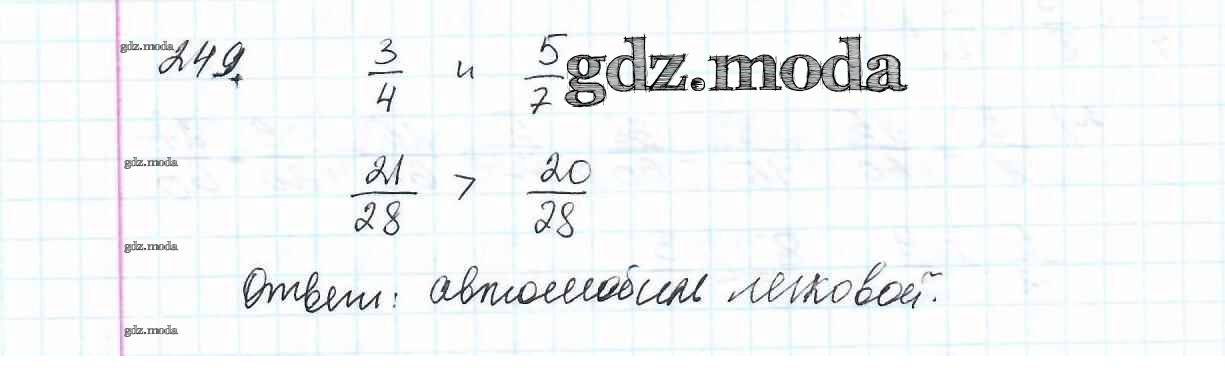 gdz.moda
249. 3/4 и 5/7 gdz.moda
gdz.moda
21/28 > 20/28
gdz.moda
Ответ: автомобиль легковой.
gdz.moda